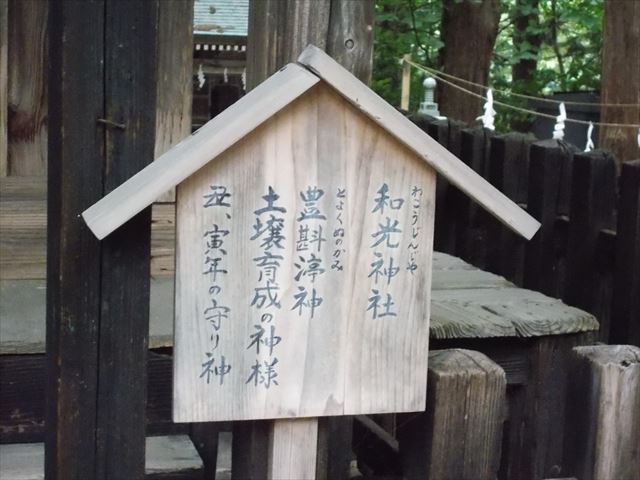 わこうじんじゃ
和光神社
とよくぬのかみ
豊斟渟神
土壌育成の神様
丑、寅年の守り神